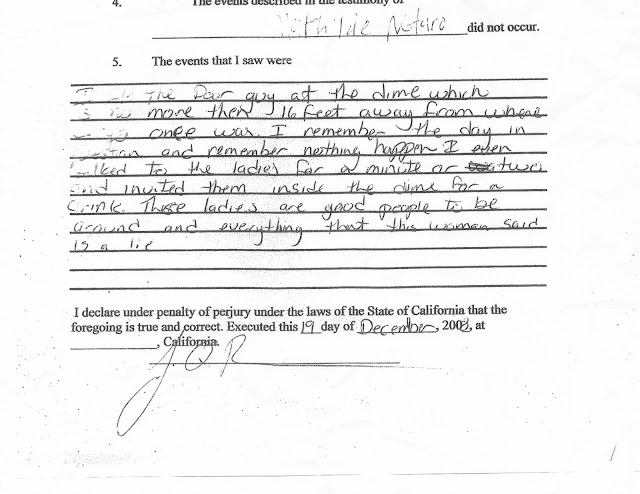 4. The events described in the testimony of
Mathilde Notaro did not occur.
5. The events that I saw were
the Door guy at the dime which
is no more then 16 feet away from where
onee was. I remember the day in
and remember nothing happen I even
talked to the ladies for a minute or two
and invited them inside the dime for a
drink. These ladies are good people to be
around and everything that this woman said
is a lie
I declare under penalty of perjury under the laws of the State of California that the
foregoing is true and correct. Executed this 19 day of December, 2008, at
, California.
J O R